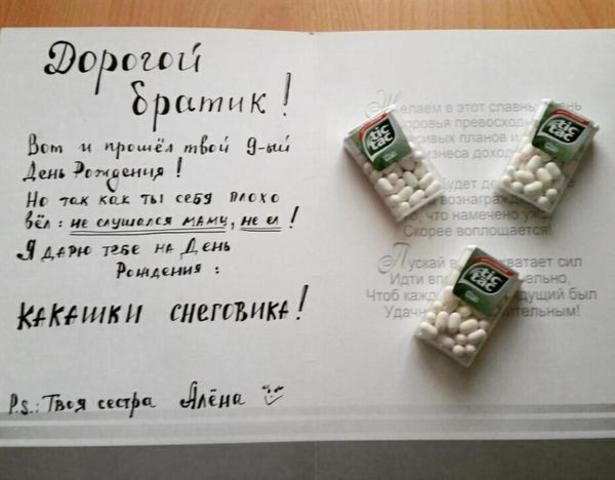 Дорогой
братик!
Вот и прошёл твой 9-ый
День Рождения!
Но так как ты себя плохо
вёл: не слушался маму, не ел!
Я дарю тебе на День
Рождения:
КАКАШКИ СНЕГОВИКА!
P.s.: Твоя сестра Алёна
Желаем в этот славный день
превосход
планов и
бизнеса доход
tic tac
tic tac
Будет
вознаграж
что намечено
Скорее воплощается!
Пускай хватает сил
Идти
Чтоб кажд дущий был
Удач тельным!
tic tac